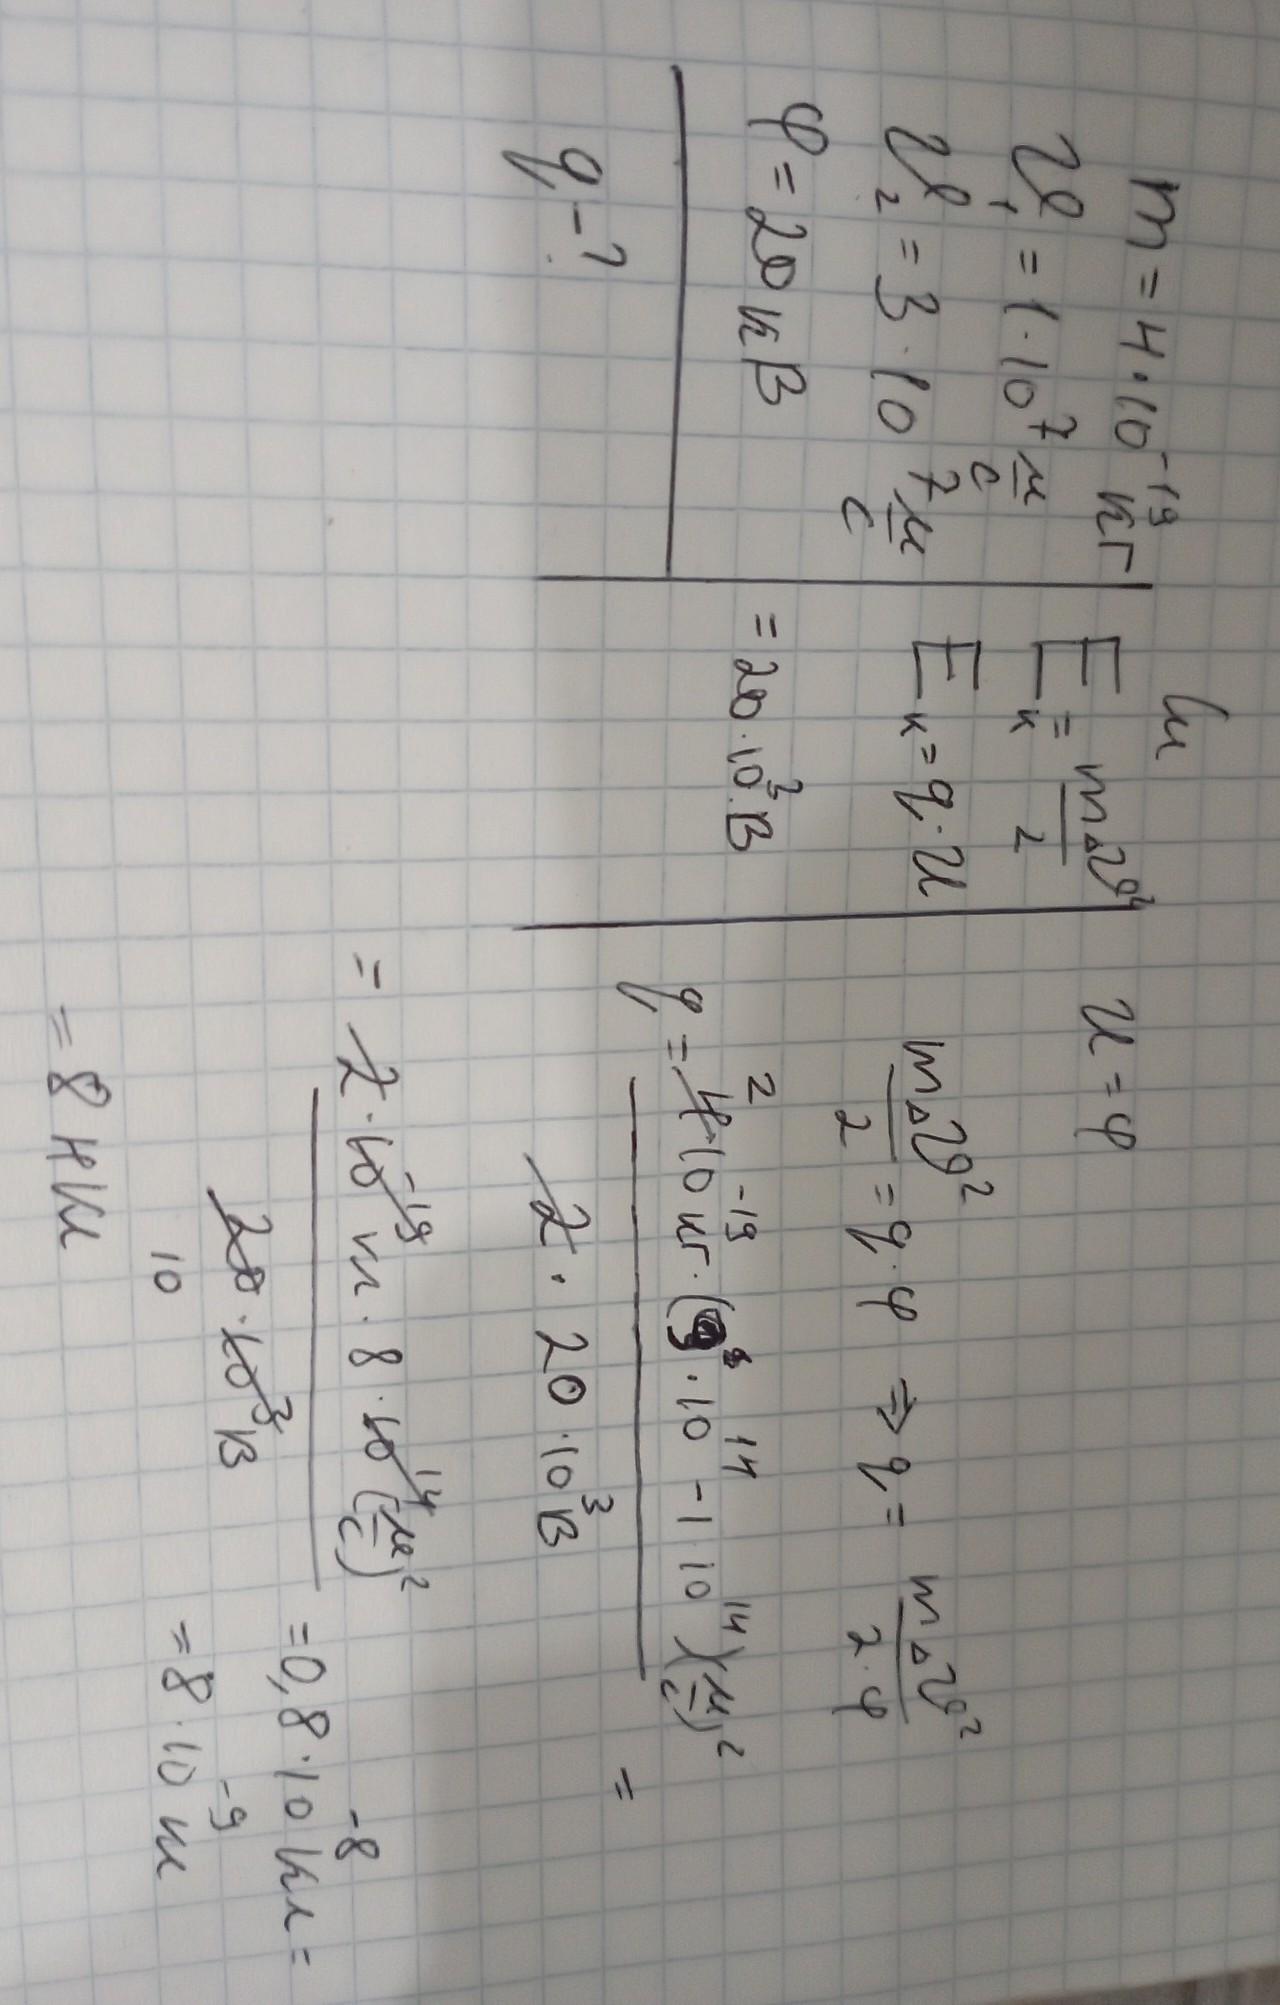 m = 4·10⁻¹⁹ кг
υ₁ = 1·10⁷ м/с
υ₂ = 3·10⁷ м/с
φ = 20 кВ
q - ?
Си
Eк = mΔυ²/2
Eк = q·U
= 20·10³ В
U = φ
mΔυ²/2 = q·φ ⇒ q = mΔυ²/2·φ
q = 4·10⁻¹⁹ кг·(9·10¹⁴ - 1·10¹⁴)(м/с)² / 2·20·10³ В =
= 2·10⁻¹⁹ кг·8·10¹⁴ (м/с)² / 20·10³ В = 0,8·10⁻⁸ Кл =
10
= 8·10⁻⁹ Кл
= 8 нКл